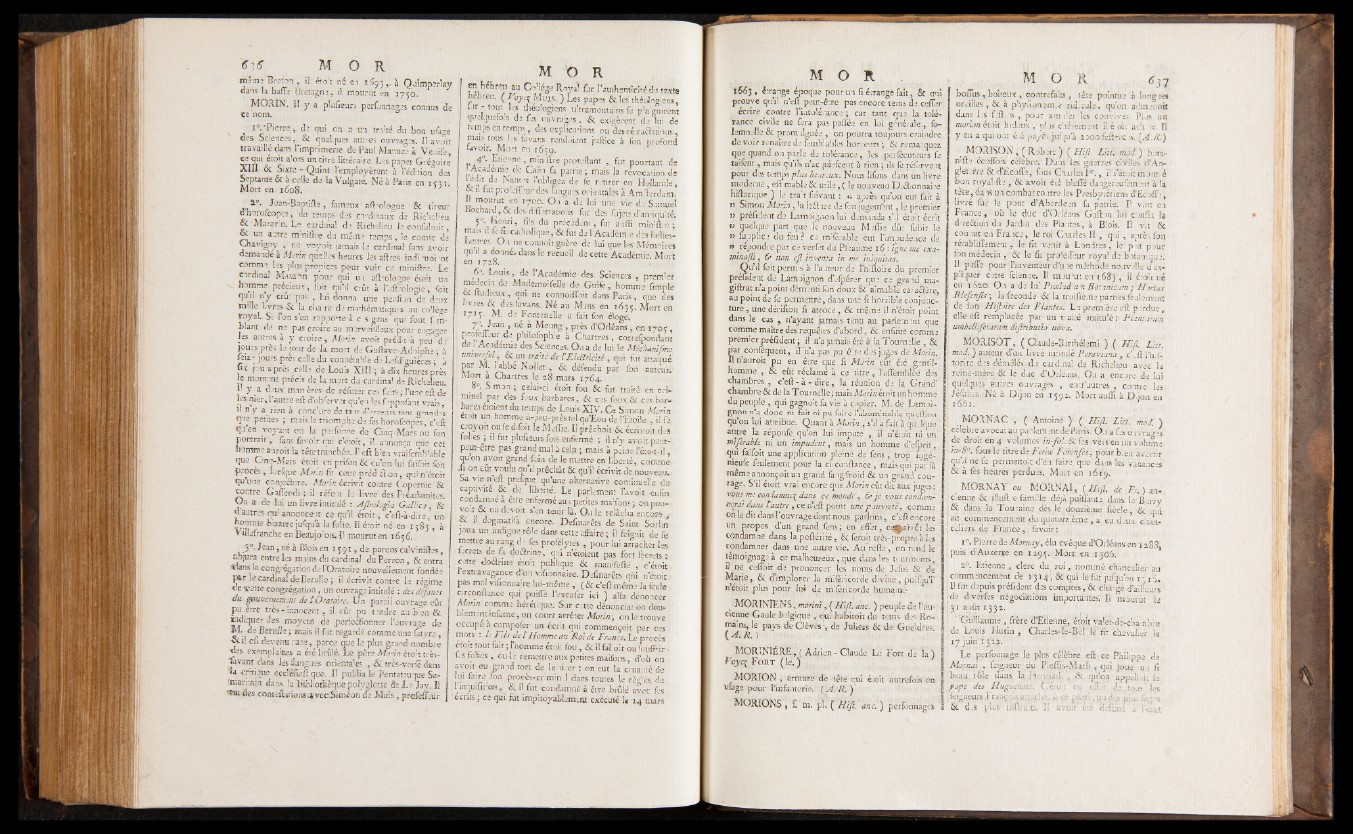 636 M O R
même Breton, il étoit né en 1693, à Quimperlay
dans la basse Bretagne, il mourut en 1750.
MORIN. Il y a plusieurs personnages connus de
ce nom.
1°. Pierre, de qui on a un traité du bon usage
des Sciences, & quelques autres ouvrages. Il avoit
travaillé dans l'imprimerie de Paul Manuce à Venise,
ce qui étoit alors un titre littéraire. Les papes Grégoire
XIII & Sixte-Quint l'employèrent à l'édition des
Septante & à celle de la Vulgate. Né à Paris en 1531.
Mort en 1608.
2°. Jean-Baptiste, fameux astrologue & tireur
d'horoscopes, du temps des cardinaux de Richelieu
& Mazarin. Le cardinal de Richelieu le consultoit,
& un autre ministre du même temps, le comte de
Chavigny, ne voyoit jamais le cardinal sans avoir
demandé à Morin quelles heures les astres indiquoient
comme les plus propices pour voir ce ministre. Le
cardinal Mazarin pour qui un astrologue étoit un
homme précieux, soit qu'il crût à l'astrologie, soit
qu'il n'y crût pas, lui donna une pension de deux
mille livres & la chaire de mathématiques au collège
royal. Si l'on s'en rapporte à ces gens qui font semblant
de ne pas croire au merveilleux pour engager
les autres à y croire, Morin avoit prédit à peu de
jours près le jour de la mort de Gustave-Adolphe; à
seize jours près celle du connétable de Lesdiguières; à
six jours près celle de Louis XIII; à dix heures près
le moment précis de la mort du cardinal de Richelieu.
Il y a deux manières de réfuter ces faits; l'une est de
les nier, l'autre est d'observer qu'en les supposant vrais,
il n'y a rien à conclure de tant d'erreurs tant grandes
que petites; mais le triomphe de ses horoscopes, c'est
qu'en voyant en la personne de Cinq-Mars ou son
portrait, sans savoir qui c'étoit, il annonça que cet
homme auroit la tête tranchée. Il est bien vraisemblable
que Cinq-Mars étoit en prison & qu'on lui faisoit son
procès, lorsque Morin fit cette prédiction, qui n'étoit
qu'une conjecture. Morin écrivit contre Copernic &
contre Gassendi; il réfuta le livre des Préadamites.
On a de lui un livre intitulé: Astrologia Gallica, &
d'autres qui annoncent ce qu'il étoit, c'est-à-dire, un
homme bizarre jusqu'à la folie. Il étoit né en 1583, à
Villefranche en Beaujolois. Il mourut en 1656.
3°. Jean, né à Blois en 1591, de parens calvinistes,
abjura entre les mains du cardinal du Perron, & entra
dans la congrégation de l'Oratoire nouvellement fondée
par le cardinal de Berulle; il écrivit contre le régime
de cette congrégation, un ouvrage intitulé: des défauts
du gouvernement de l'Oratoire. Un pareil ouvrage eût
pu être très-innocent, il eût pu tendre au bien &
indiquer des moyens de perfectionner l'ouvrage de
M. de Berulle; mais il fut regardé comme une satyre,
& il est devenu rare, parce que le plus grand nombre
des exemplaires a été brûlé. Le père Morin étoit très-
savant dans les langues orientales, & très-versé dans
la critique ecclésiastique. Il publia le Pentateuque Samaritain
dans la Bibliothèque polyglotte de Le Jay. Il
eut des contestations avec Siméon de Muis, professeur
M O R
en hébreu au Collége Royal sur l'authenticité du texte
hébreu. (Voyez MUIS.) Les papes & les théologiens,
sur-tout les théologiens ultramontains se plaignirent
quelquefois de ses ouvrages, & exigèrent de lui de
temps en temps, des explications ou des rétractations,
mais tous les savans rendoient justice à son profond
savoir. Mort en 1659.
4°. Etienne, ministre protestant, fut pourtant de
l'Académie de Caën sa patrie; mais la revocation de
l'édit de Nantes l'obligea de se retirer en Hollande,
& il fut professeur des langues orientales à Amsterdam.
Il mourut en 1700. On a de lui une vie de Samuel
Bochard, & des dissertations sur des sujets d'antiquité.
5°. Henri, fils du précédent, fut aussi ministre;
mais il se fit catholique, & fut de l'Académie des Belles-
Lettres. On ne connoit guère de lui que les Mémoires
qu'il a donnés dans le recueil de cette Académie. Mort
en 1728.
6°. Louis, de l'Académie des Sciences, premier
médecin de Mademoiselle de Guise, homme simple
& studieux, qui ne connoissoit dans Paris, que des
livres & des savans. Né au Mans en 1635. Mort en
1715. M. de Fontenelle a fait son éloge.
7°. Jean, né à Meung, près d'Orléans, en 1705,
professeur de philosophie à Chartres, correspondant
de l'Académie des Sciences. On a de lui le Méchanisme
universel, & un traité de l'Electricité, qui fut attaqué
par M. l'abbé Nollet, & défendu par son auteur.
Mort à Chartres le 28 mars 1764.
8°. Simon; celui-ci étoit fou & fut traité en criminel
par des foux barbares, & ces foux & ces barbares
étoient du temps de Louis XIV. Ce Simon Morin
étoit un homme à-peu-près tel qu'Eon de l'Etoile, il se
croyoit ou se disoit le Messie. Il prêchoit & écrivoit des
folies; il fut plusieurs fois enfermé; il n'y avoit peut-
être pas grand mal à cela; mais à peine l'étoit-il,
qu'on avoit grand soin de le mettre en liberté, comme
si on eût voulu qu'il prêchât & qu'il écrivît de nouveau.
Sa vie n'est presque qu'une alternative continuelle de
captivité & de liberté. Le parlement l'avoit enfin
condamné à être enfermé aux petites maisons; on pouvoit
& on devoit s'en tenir là. On le relâcha encore,
& il dogmatisa encore. Desmarêts de Saint Sorlin
joua un indigne rôle dans cette affaire; il feignit de se
mettre au rang de ses prosélytes, pour lui arracher les
secrets de sa doctrine, qui n'étoient pas fort secrets:
cette doctrine étoit publique & manifeste, c'étoit
l'extravagance d'un visionnaire. Desmarêts qui n'étoit
pas mal visionnaire lui-même, (& c'est même la seule
circonstance qui puisse l'excuser ici) alla dénoncer
Morin comme hérétique. Sur cette dénonciation doublement
infâme, on court arrêter Morin, on le trouve
occupé à composer un écrit qui commençoit par ces
mots: le Fils de l'Homme au Roi de France. Le procès
étoit tout fait; l'homme étoit fou, & il falloit ou souffrir
ses folies, ou le remettre aux petites maisons, d'où on
avoit eu grand tort de le tirer: on eut la cruauté de
lui faire son procès-criminel dans toutes les règles de
l'injustice, & il fut condamné à être brûlé avec ses
écrits; ce qui fut impitoyablement exécuté le 14 mars
M O R
1663, étrange époque pour un si étrange fait, & qui
prouve qu'il n'est peut-être pas encore tems de cesser
écrire contre l'intolérance; car tant que la tolérance
civile ne sera pas passée en loi générale, solemnelle
& promulguée, on pourra toujours craindre
de voir renaître de semblables horreurs; & remarquez
que quand on parle de tolérance, les persécuteurs se
taisent, mais qu'ils n'acquiescent à rien; ils se réservent
pour des temps plus heureux. Nous lisons dans un livre
moderne, estimable & utile, (le nouveau Dictionnaire
historique) le trait suivant: « après qu'on eut fait à
» Simon Morin, la lecture de son jugement, le premier
» président de Lamoignon lui demanda s'il étoit écrit
» quelque part que le nouveau Messie dût subir le
» supplice du feu? ce misérable eut l'impudence de
» répondre par ce verset du Pseaume 16: igne me examinasti,
& non est inventa in me iniquitas.
Qu'il soit permis à l'auteur de l'histoire du premier
président de Lamoignon d'espérer que ce grand magistrat
n'a point démenti son doux & aimable caractère,
au point de se permettre, dans une si horrible conjoncture,
une dérision si atroce, & même il n'étoit point
dans le cas, n'ayant jamais tenu au parlement que
comme maître des requêtes d'abord, & ensuite comme
premier président; il n'a jamais été à la Tournelle, &
par conséquent, il n'a pas pu être des juges de Morin.
Il n'auroit pu en être que si Morin eût été gentilhomme,
& eût réclamé à ce titre, l'assemblée des
chambres, c'est-à-dire, la réunion de la Grand'
chambre & de la Tournelle; mais Morin étoit un homme
du peuple, qui gagnoit sa vie à copier. M. de Lamoignon
n'a donc ni fait ni pu faire l'abominable question
qu'on lui attribue. Quant à Morin, s'il a fait à quelque
autre la réponse qu'on lui impute, il n'étoit ni un
misérable ni un impudent, mais un homme d'esprit,
qui faisoit une application pleine de sens, trop ingénieuse
seulement pour la circonstance, mais qui par là
même annonçoit un grand sangfroid & un grand courage.
S'il étoit vrai encore que Morin eût dit aux juges:
vous me condamnez dans ce monde, & je vous condamnerai
dans l'autre, ce n'est point une pauvreté, comme
on le dit dans l'ouvrage dont nous parlons, c'est encore
un propos d'un grand sens; en effet, les
condamne dans la postérité, & seroit très-propre à les
condamner dans une autre vie. Au reste, on rend le
témoignage à ce malheureux, que dans les tourmens,
il ne cessoit de prononcer les noms de Jesus & de
Marie, & d'implorer la miséricorde divine, puisqu'il
n'étoit plus pour lui de miséricorde humaine.
MORINIENS, morini, (Hist. anc.) peuple de l'ancienne
Gaule belgique, qui habitoit du tems des Romains,
le pays de Clèves, de Juliers & de Gueldres.
(A. R.)
MORINIÈRE, (Adrien-Claude Le Fort de la)
Voyez FORT (le.)
MORION, armure de tête qui étoit autrefois en
usage pour l'infanterie. (A. R.)
MORIONS, f. m. pl. (Hist. anc.) personnages
M O R 637
bossus, boiteux, contrefaits, tête pointue à longues
oreilles, & à physionomie ridicule, qu'on admettoit
dans les festins, pour amuser les convives. Plus un
morion étoit hideux, plus chèrement il étoit acheté. Il
y en a qui ont été payés jusqu'à 2000 sesterces. (A. R.)
MORISON, (Robert) (Hist. Litt. mod.) botaniste
écossois célèbre. Dans les guerres civiles d'Angleterre
& d'Ecosse, sous Charles Ier., il s'étoit montré
bon royaliste, & avoit été blessé dangereusement à la
tête, dans un combat contre les Presbytériens d'Ecosse,
livré sur le pont d'Aberdeen sa patrie. Il vint en
France, où le duc d'Orléans Gaston lui confia la
direction du Jardin des Plantes, à Blois. Il vit &
connut en France, le roi Charles II, qui, après son
rétablissement, le fit venir à Londres, le prit pour
son médecin, & le fit professeur royal de botanique.
Il passe pour l'inventeur d'une méthode nouvelle d'expliquer
cette science. Il mourut en 1683, il étoit né
en 1620. On a de lui Præludium Botanicum; Hortus
Blesensis; la seconde & la troisième parties seulement
de son Histoire des Plantes. La première est perdue,
elle est remplacée par un traité intitulé: Plantarum
umbelliferarum distributio nova.
MORISOT, (Claude-Barthélemi) (Hist. Litt.
mod.) auteur d'un livre intitulé Peruviana, c'est l'histoire
des démêlés du cardinal de Richelieu avec la
reine-mère & le duc d'Orléans. On a encore de lui
quelques autres ouvrages, entr'autres, contre les
Jésuites. Né à Dijon en 1592. Mort aussi à Dijon en
1661.
MORNAC, (Antoine) (Hist. Litt. mod.)
célèbre avocat au parlement de Paris. On a ses ouvrages
de droit en 4 volumes in-fol. & ses vers en un volume
in-8°. sous le titre de Feriæ Forenses, pour bien avertir
qu'il ne se permettoit d'en faire que dans les vacances
& à ses heures perdues. Mort en 1619.
MORNAY ou MORNAI, (Hist. de Fr.) ancienne
& illustre famille déjà puissante dans le Berry
& dans la Touraine dès le douzième siècle, & qui
au commencement du quatorzième, a eu deux chanceliers
de France, savoir:
1°. Pierre de Mornay, élu evêque d'Orléans en 1288,
puis d'Auxerre en 1295. Mort en 1306.
2°. Etienne, clerc du roi, nommé chancelier au
commencement de 1314, & qui le fut jusqu'en 1315.
Il fut depuis président des comptes, & chargé d'ailleurs
de diverses négociations importantes. Il mourut le
31 août 1332.
Guillaume, frère d'Etienne, étoit valet-de-chambre
de Louis Hutin, Charles-le-Bel le fit chevalier le
17 juin 1322.
Le personnage le plus célèbre est ce Philippe de
Mornai, seigneur du Plessis-Marli, qui joue un si
beau rôle dans la Henriade, & qu'on appelloit le
pape des Huguenots. C'étoit en effet de tous les
seigneurs François attachés à ce parti, un des plus sages
& des plus instruits. Il avoit été destiné à l'état